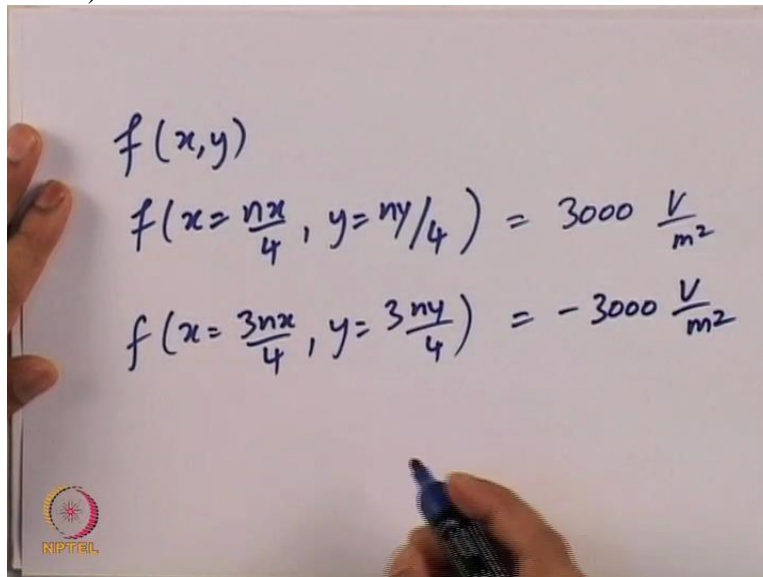 )
f(x,y)
f(x= nx/4, y= ny/4) = 3000 V/m²
f(x= 3nx/4, y= 3ny/4) = -3000 V/m²
NPTEL